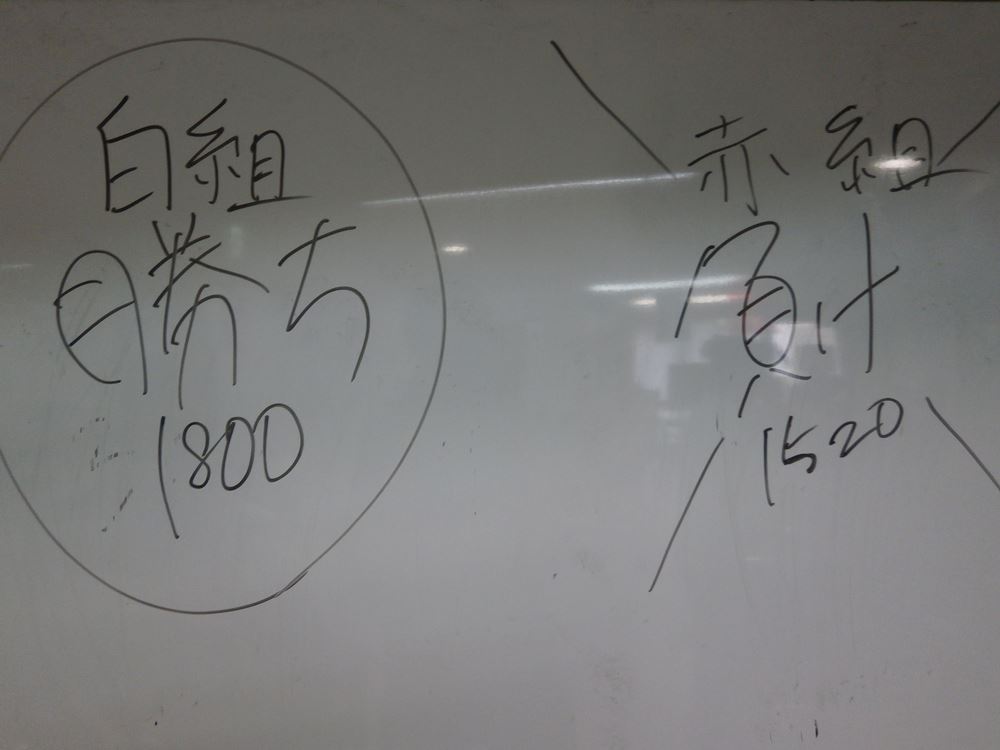 白組
勝ち
1800
赤組
負け
1520